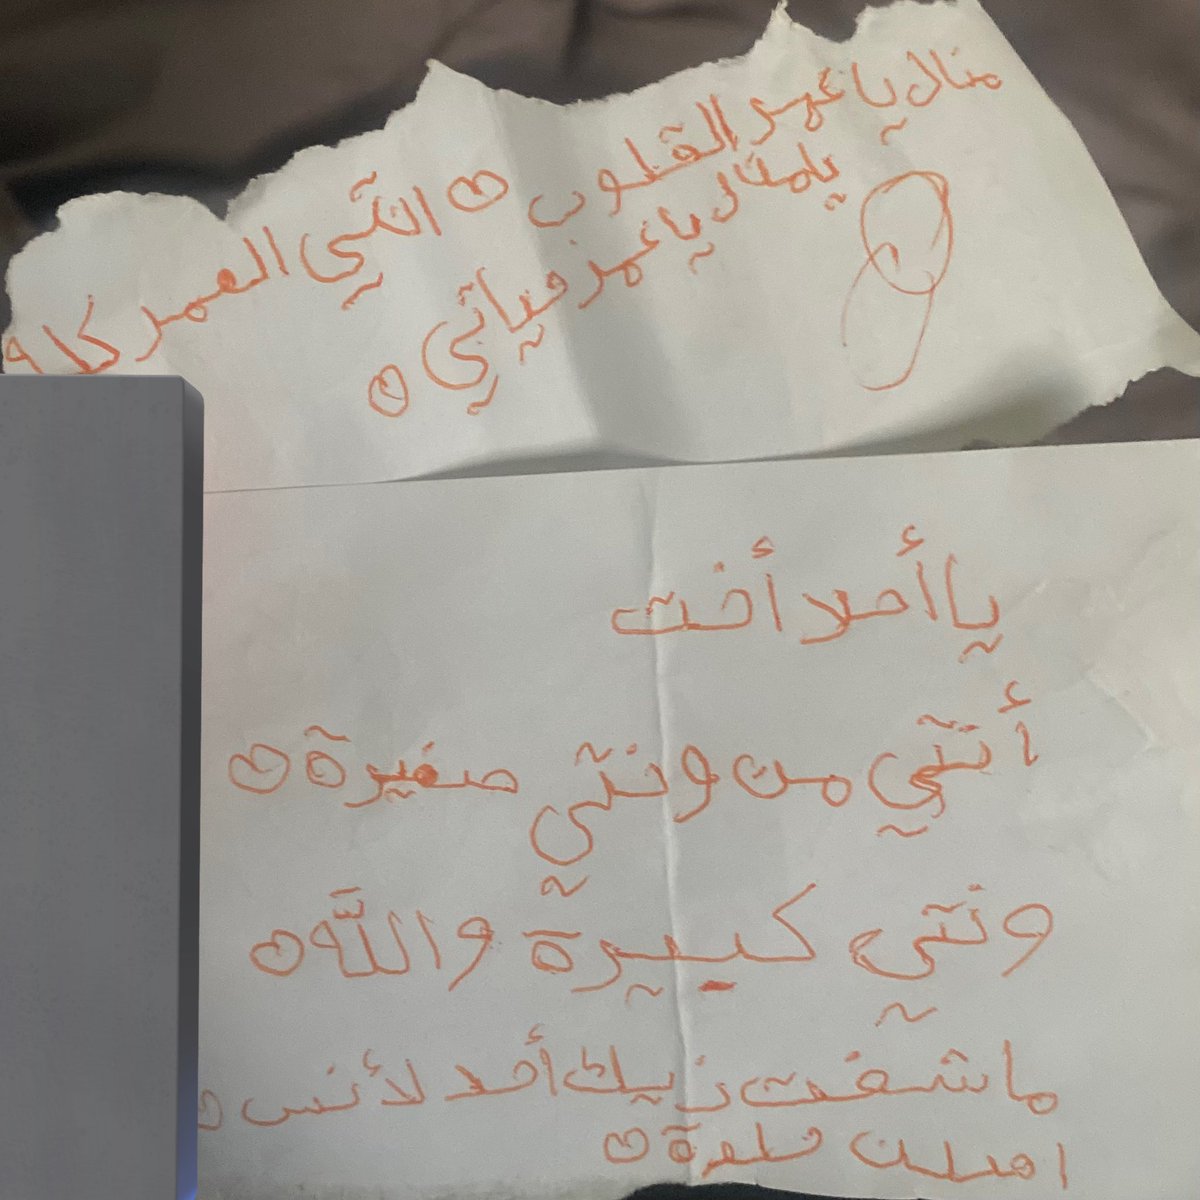 منال يا عمر القلوب انتي العمر كله
يا منال يا عمر حياتي
يا أحلا أخت
أنتي من ونتي صغيرة
ونتي كبيرة واللَّه
ما شفت زيك أحد لأنس
حلوة